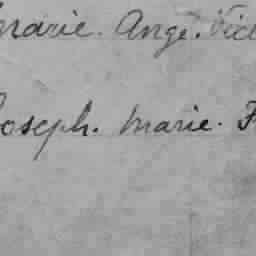 Marie. Ange. Vice
Joseph. Marie. F